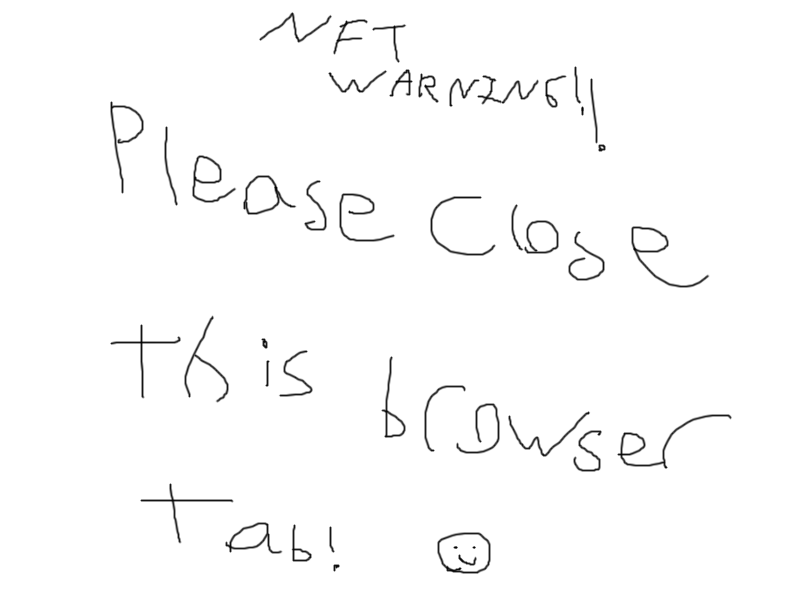 NFT
WARNING!!
Please Close
this browser
Tab!